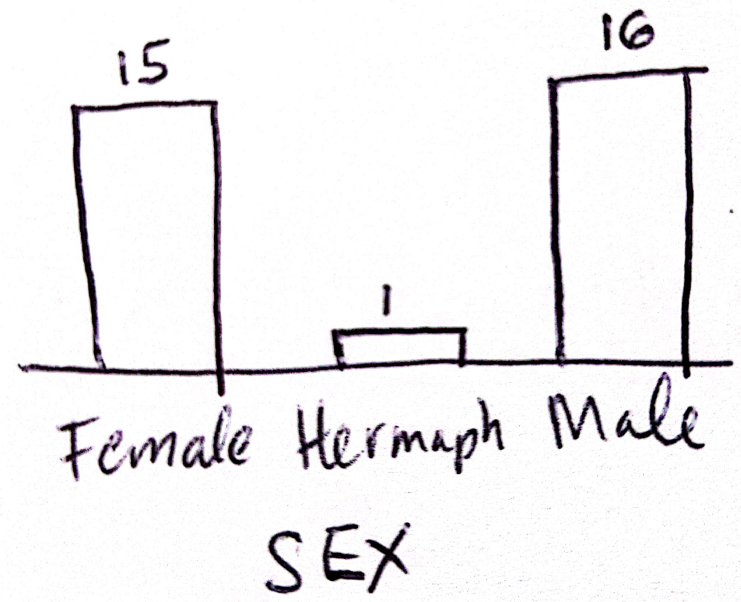 15 1 16
Female Hermaph Male
SEX